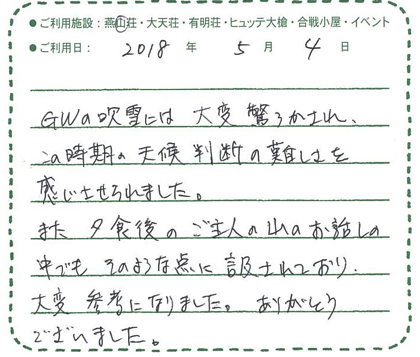 ●ご利用施設：燕山荘・大天荘・有明荘・ヒュッテ大槍・合戦小屋・イベント
●ご利用日：2018年5月4日
GWの吹雪には大変驚ろかされ、
この時期の天候判断の難しさを
感じさせられました。
また夕食後のご主人の山のお話しの
中でもそのような点に言及されており、
大変参考になりました。ありがとう
ございました。